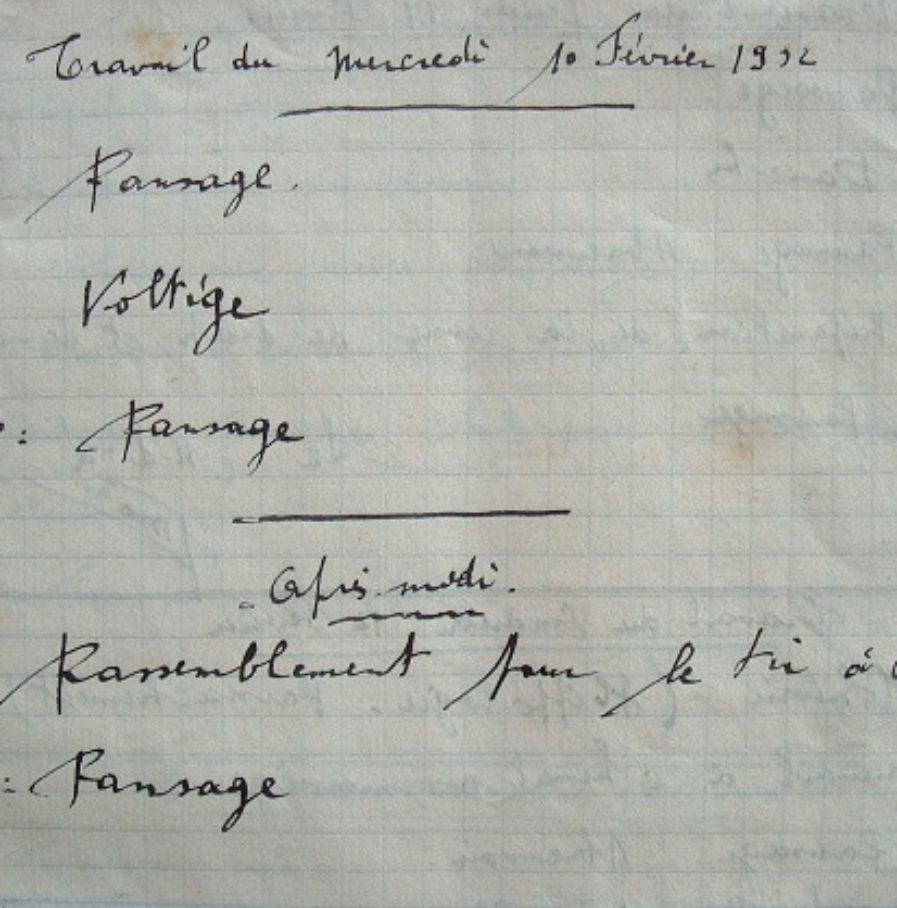 Travail du mercredi 10 Février 1932
Pansage.
Voltige
: Pansage
Après-midi.
Rassemblement pour le tir à
: Pansage